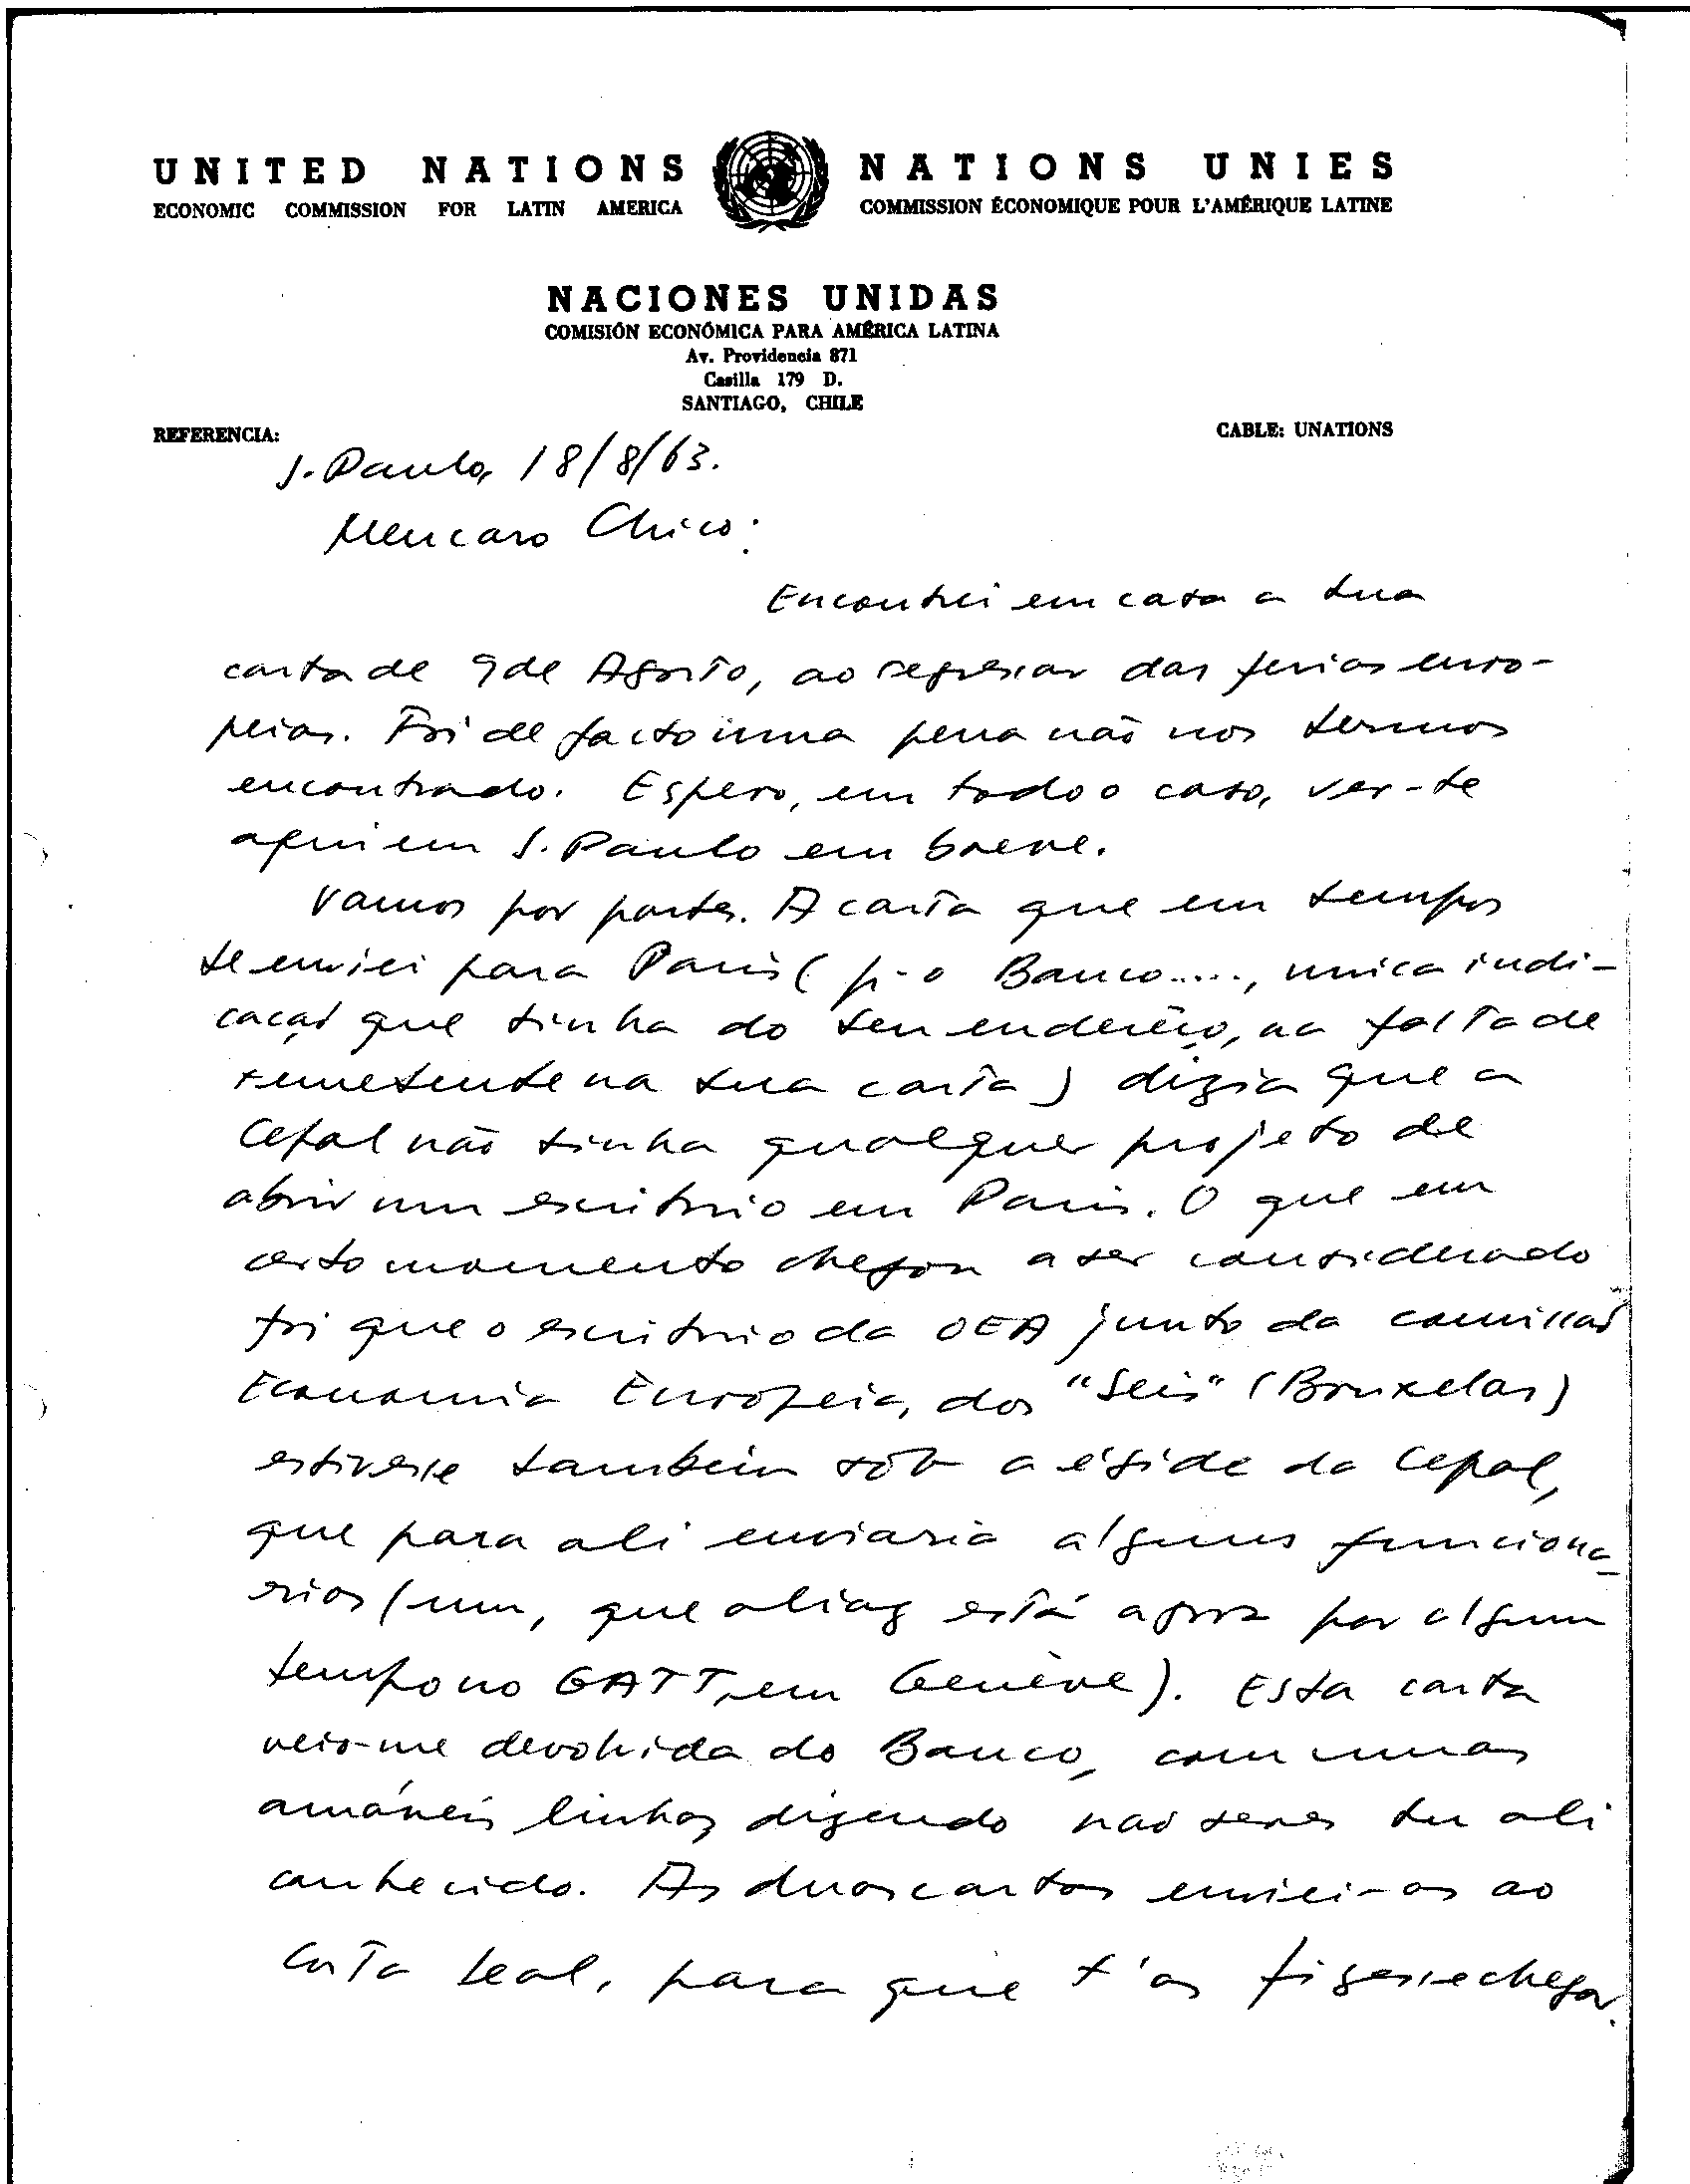 UNITED NATIONS NATIONS UNIES
ECONOMIC COMMISSION FOR LATIN AMERICA COMMISSION ÉCONOMIQUE POUR L'AMÉRIQUE LATINE
NACIONES UNIDAS
COMISIÓN ECONÓMICA PARA AMÉRICA LATINA
Av. Providencia 871
Casilla 179 D.
SANTIAGO, CHILE
REFERENCIA: CABLE: UNATIONS
S. Paulo, 18/8/63.
Meu caro Chico:
Encontrei em casa a tua
carta de 9 de Agosto, ao regressar das ferias euro-
peias. Foi de facto uma pena não nos termos
encontrado. Espero, em todo o caso, ver-te
aqui em S. Paulo em breve.
Vamos por partes. A carta que em tempos
te enviei para Paris (p-o Banco...., unica indi-
cação que tinha do teu enderêço, na falta de
remetente na tua carta) dizia que a
Cepal não tinha qualquer projeto de
abrir um escritorio em Paris. O que em
certo momento chegou a ser considerado
foi que o escritorio da OEA junto da comissão
Economia Europeia, dos "Seis" (Bruxelas)
estivesse tambẽm sôb a égide da Cepal,
que para ali enviaria alguns funciona
rios (um, que aliaz está agora por algum
tempo no GATT, em Genève). Esta carta
veio-me devolvida do Banco, com umas
amáveis linhas dizendo não seres tu ali
conhecido. As duas cartas enviei-as ao
Costa Leal, para que t'as fizesse chegar.